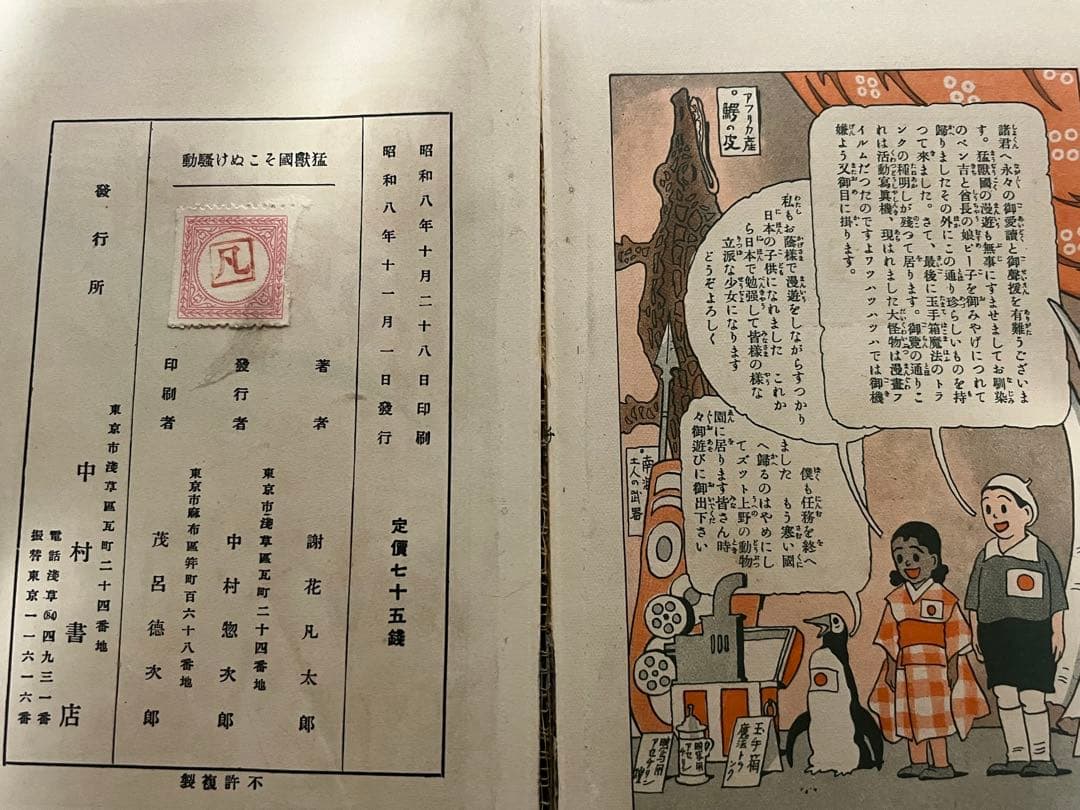 諸君へ永々の御愛讀と御聲援を有難うございま
す。猛獸國の漫遊も無事にすませましてお馴染
のペン吉と酋長の娘ピー子を御みやげにつれて
歸りましたその外にこの通り珍らしいものを持
つて來ました。さて、最後に玉手箱魔法のトラ
ンクの種明しが殘つて居ります。御覽の通りこ
れは活動寫眞機、現はれました大怪物は漫畫フ
イルムだつたのですよワツハツハツハでは御機
嫌よう又御目に掛ります。
アフリカ産
鰐の皮。
私もお蔭樣で漫遊をしながらすつかり
日本の子供になれました これか
ら日本で勉强して皆樣の樣な
立派な少女になります
どうぞよろしく
僕も任務を終へ
ました もう寒い國
へ歸るのはやめにし
てズツト上野の動物
園に居ります皆さん時
々御遊びに御出下さい
土人の武器
玉手箱
魔法トランク
アセチリン
昭和八年十月二十八日印刷
昭和八年十一月一日發行
定價七十五錢
猛獸國そこぬけ騷動
凡
著者 謝花凡太郎
東京市淺草區瓦町二十四番地
發行者 中村惣次郎
東京市麻布區笄町百六十八番地
印刷者 茂呂德次郎
發行所
東京市淺草區瓦町二十四番地
中村書店
電話淺草(84)四九三一番
振替東京一一六一六番
不許複製